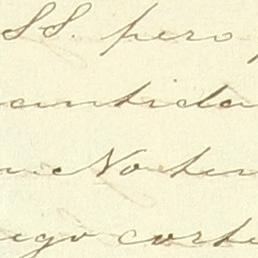 SS. pero
antida
n. Noten
ego corte